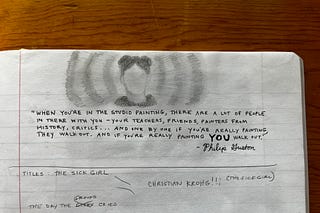 "WHEN YOU'RE IN THE STUDIO PAINTING, THERE ARE A LOT OF PEOPLE
IN THERE WITH YOU - YOUR TEACHERS, FRIENDS, PAINTERS FROM
HISTORY, CRITICS... AND ONE BY ONE IF YOU'RE REALLY PAINTING,
THEY WALK OUT. AND IF YOU'RE REALLY PAINTING YOU WALK OUT."
- Philip Guston
TITLES: THE SICK GIRL
CHRISTIAN KROHG!!; (THE SICK GIRL)
THE DAY THE CRIED